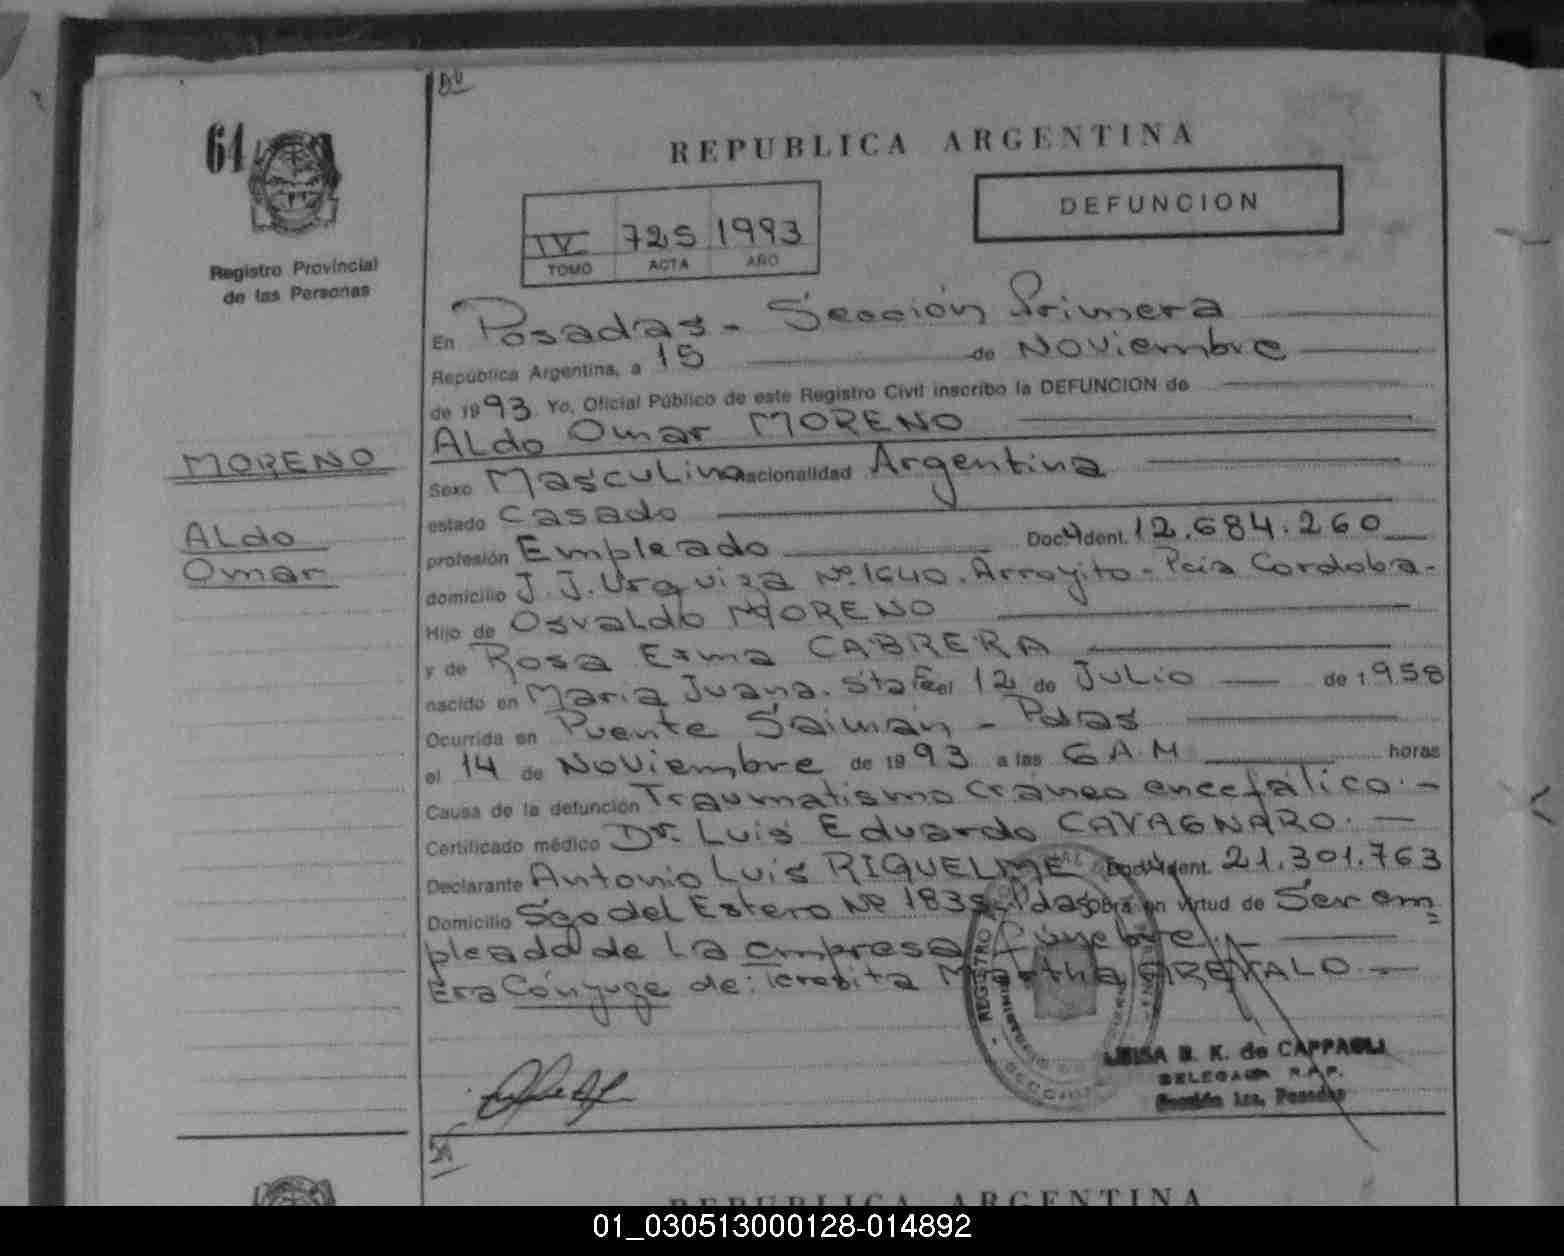 64
Registro Provincial
de las Personas
MORENO
ALdo
Omar
REPUBLICA ARGENTINA
DEFUNCION
IV 725 1993
TOMO ACTA AÑO
En Posadas - Sección Primera
República Argentina, a 15 de Noviembre
de 1993 Yo, Oficial Público de este Registro Civil inscribo la DEFUNCION de
ALdo Omar MORENO
Sexo Masculino nacionalidad Argentina
estado Casado
profesión Empleado Doc. Ident. 12.684.260
domicilio J.J. Urquiza Nº 1640. Arroyito - Pcia Cordoba -
Hijo de Osvaldo MORENO
y de Rosa Erma CABRERA
nacido en Maria Juana. Sta Fe el 12 de Julio de 1958
Ocurrida en Puente Saimán - Pdas
el 14 de Noviembre de 1993 a las 6 A.M horas
Causa de la defunción Traumatismo Cráneo encefálico. -
Certificado médico Dr. Luis Eduardo CAVAGNARO. -
Declarante Antonio Luis RIQUELME Doc. Ident. 21.301.763
Domicilio Sgo del Estero Nº 1839 - Pdas Obra en virtud de Ser em=
pleado de La empresa fúnebre. -
Era Cónyuge de: Martha AREVALO. -
REGISTRO
SECCION
LUISA B. K. de CAPPAGLI
DELEGADA R.P.P.
Sección 1ra. Posadas
REPUBLICA ARGENTINA
01_030513000128-014892